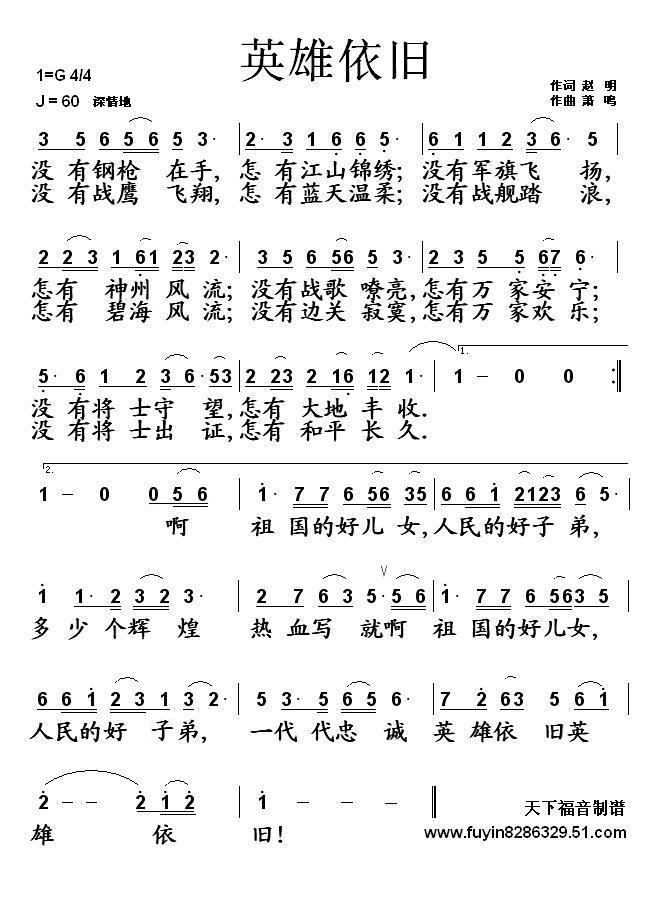 英雄依旧
1=G 4/4
J = 60 深情地
作词 赵 明
作曲 萧 鸣
3 5 6 5 6 5 3· | 2· 3 1 6 6 5 | 6 1 1 2 3 6· 5 |
没 有钢枪 在手, 怎 有江山锦绣; 没有军旗飞 扬,
没 有战鹰 飞翔, 怎 有蓝天温柔; 没有战舰踏 浪,
2 2 3 1 61 23 2· | 3 5 6 56 5 3· | 2 3 5 5 67 6· |
怎有 神州 风 流; 没有战歌 嘹亮, 怎有万 家安 宁;
怎有 碧海 风 流; 没有边关 寂寞, 怎有万 家欢 乐;
5· 6 1 2 3 6·53 | 2 23 2 16 12 1· | 1 – 0 0 :||
1.
没 有将 士守 望, 怎有 大地 丰 收.
没 有将 士出 证, 怎有 和平 长 久.
2.
1 – 0 0 5 6 | 1· 7 7 6 56 35 | 6 6 1 2123 6 5· |
啊 祖 国的好儿 女, 人民的好子 弟,
1 1· 2 3 2 3· | 2 7 6 3 5· 5 6 | 1· 7 7 6 563 5 |
∨
多 少个辉 煌 热 血写 就啊 祖 国的好儿女,
6 6 1 2 3 1 3 2· | 5 3· 5 6 5 6· | 7 2· 63 5 6 1 |
人民的好 子弟, 一代 代忠 诚 英 雄依 旧英
2 – – 2 1 2 | 1 – – ||
天下福音制谱
雄 依 旧!
www.fuyin8286329.51.com